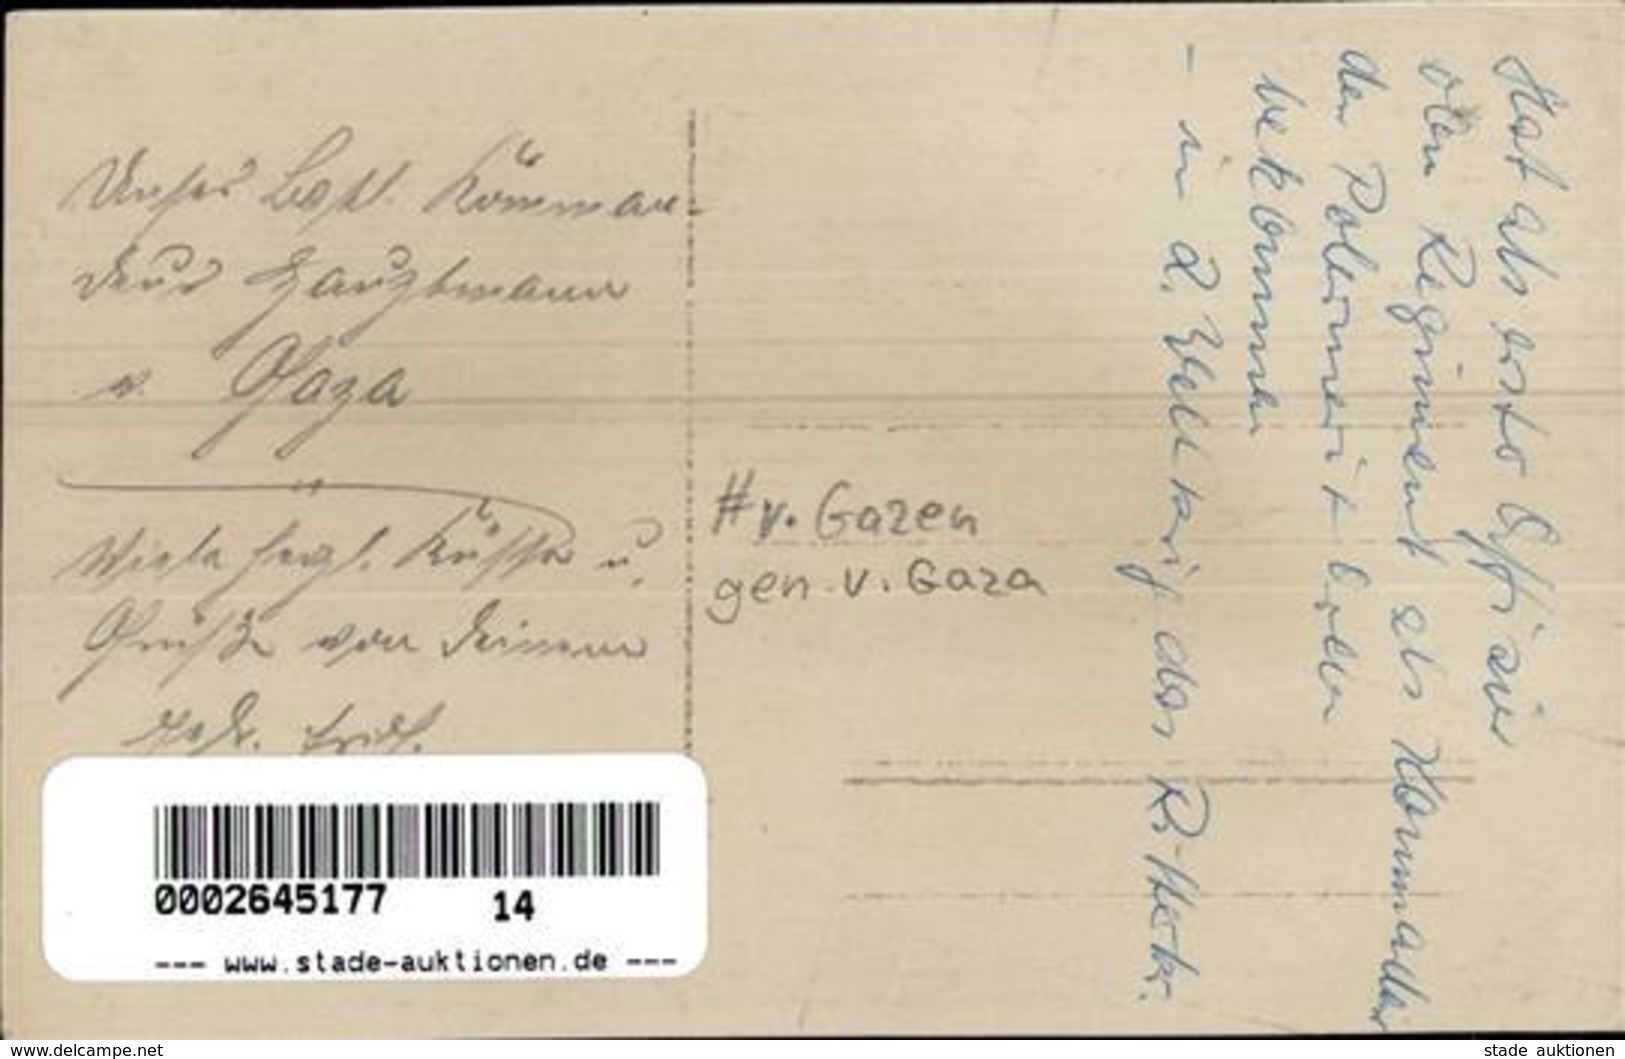 Unser Batl. Komman-
deur Hauptmann
v. Gaza
Viele herzl. Küsse u.
Grüße von Deinem
# v. Gazen
gen. v. Gaza
Hat als erster Offizier
vom Regiment als Kommandeur
den Pour le merit Orden
bekommen
- in 2. Weltkrieg das Ri-Kreuz.
0002645177 14
--- www.stade-auktionen.de ---
www.delcampe.net
stade auktionen